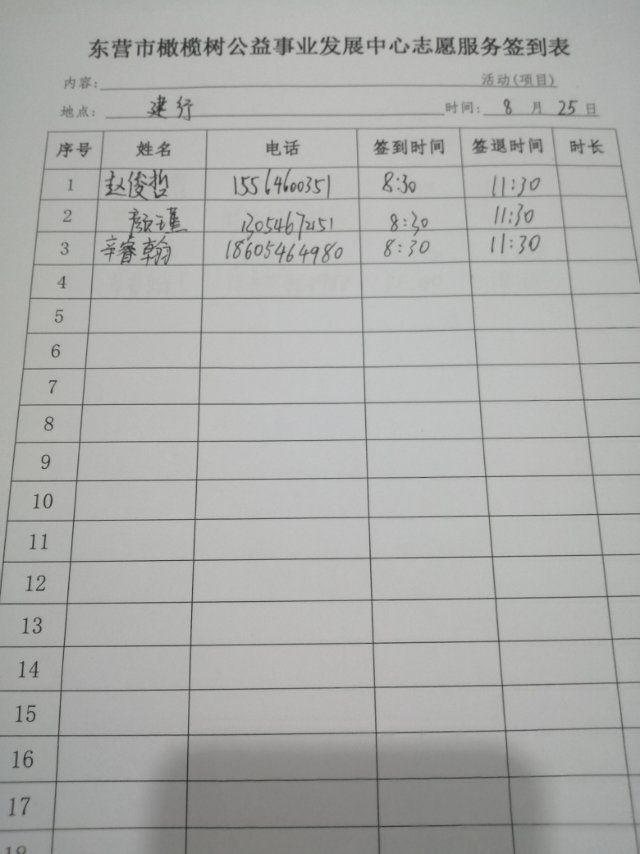 东营市橄榄树公益事业发展中心志愿服务签到表
内容: 活动(项目)
地点: 建行 时间: 8 月 25 日
序号 姓名 电话 签到时间 签退时间 时长
1 赵俊哲 15564600351 8:30 11:30
2 颜瑾 13054672151 8:30 11:30
3 辛睿翰 18605464980 8:30 11:30
4
5
6
7
8
9
10
11
12
13
14
15
16
17
18